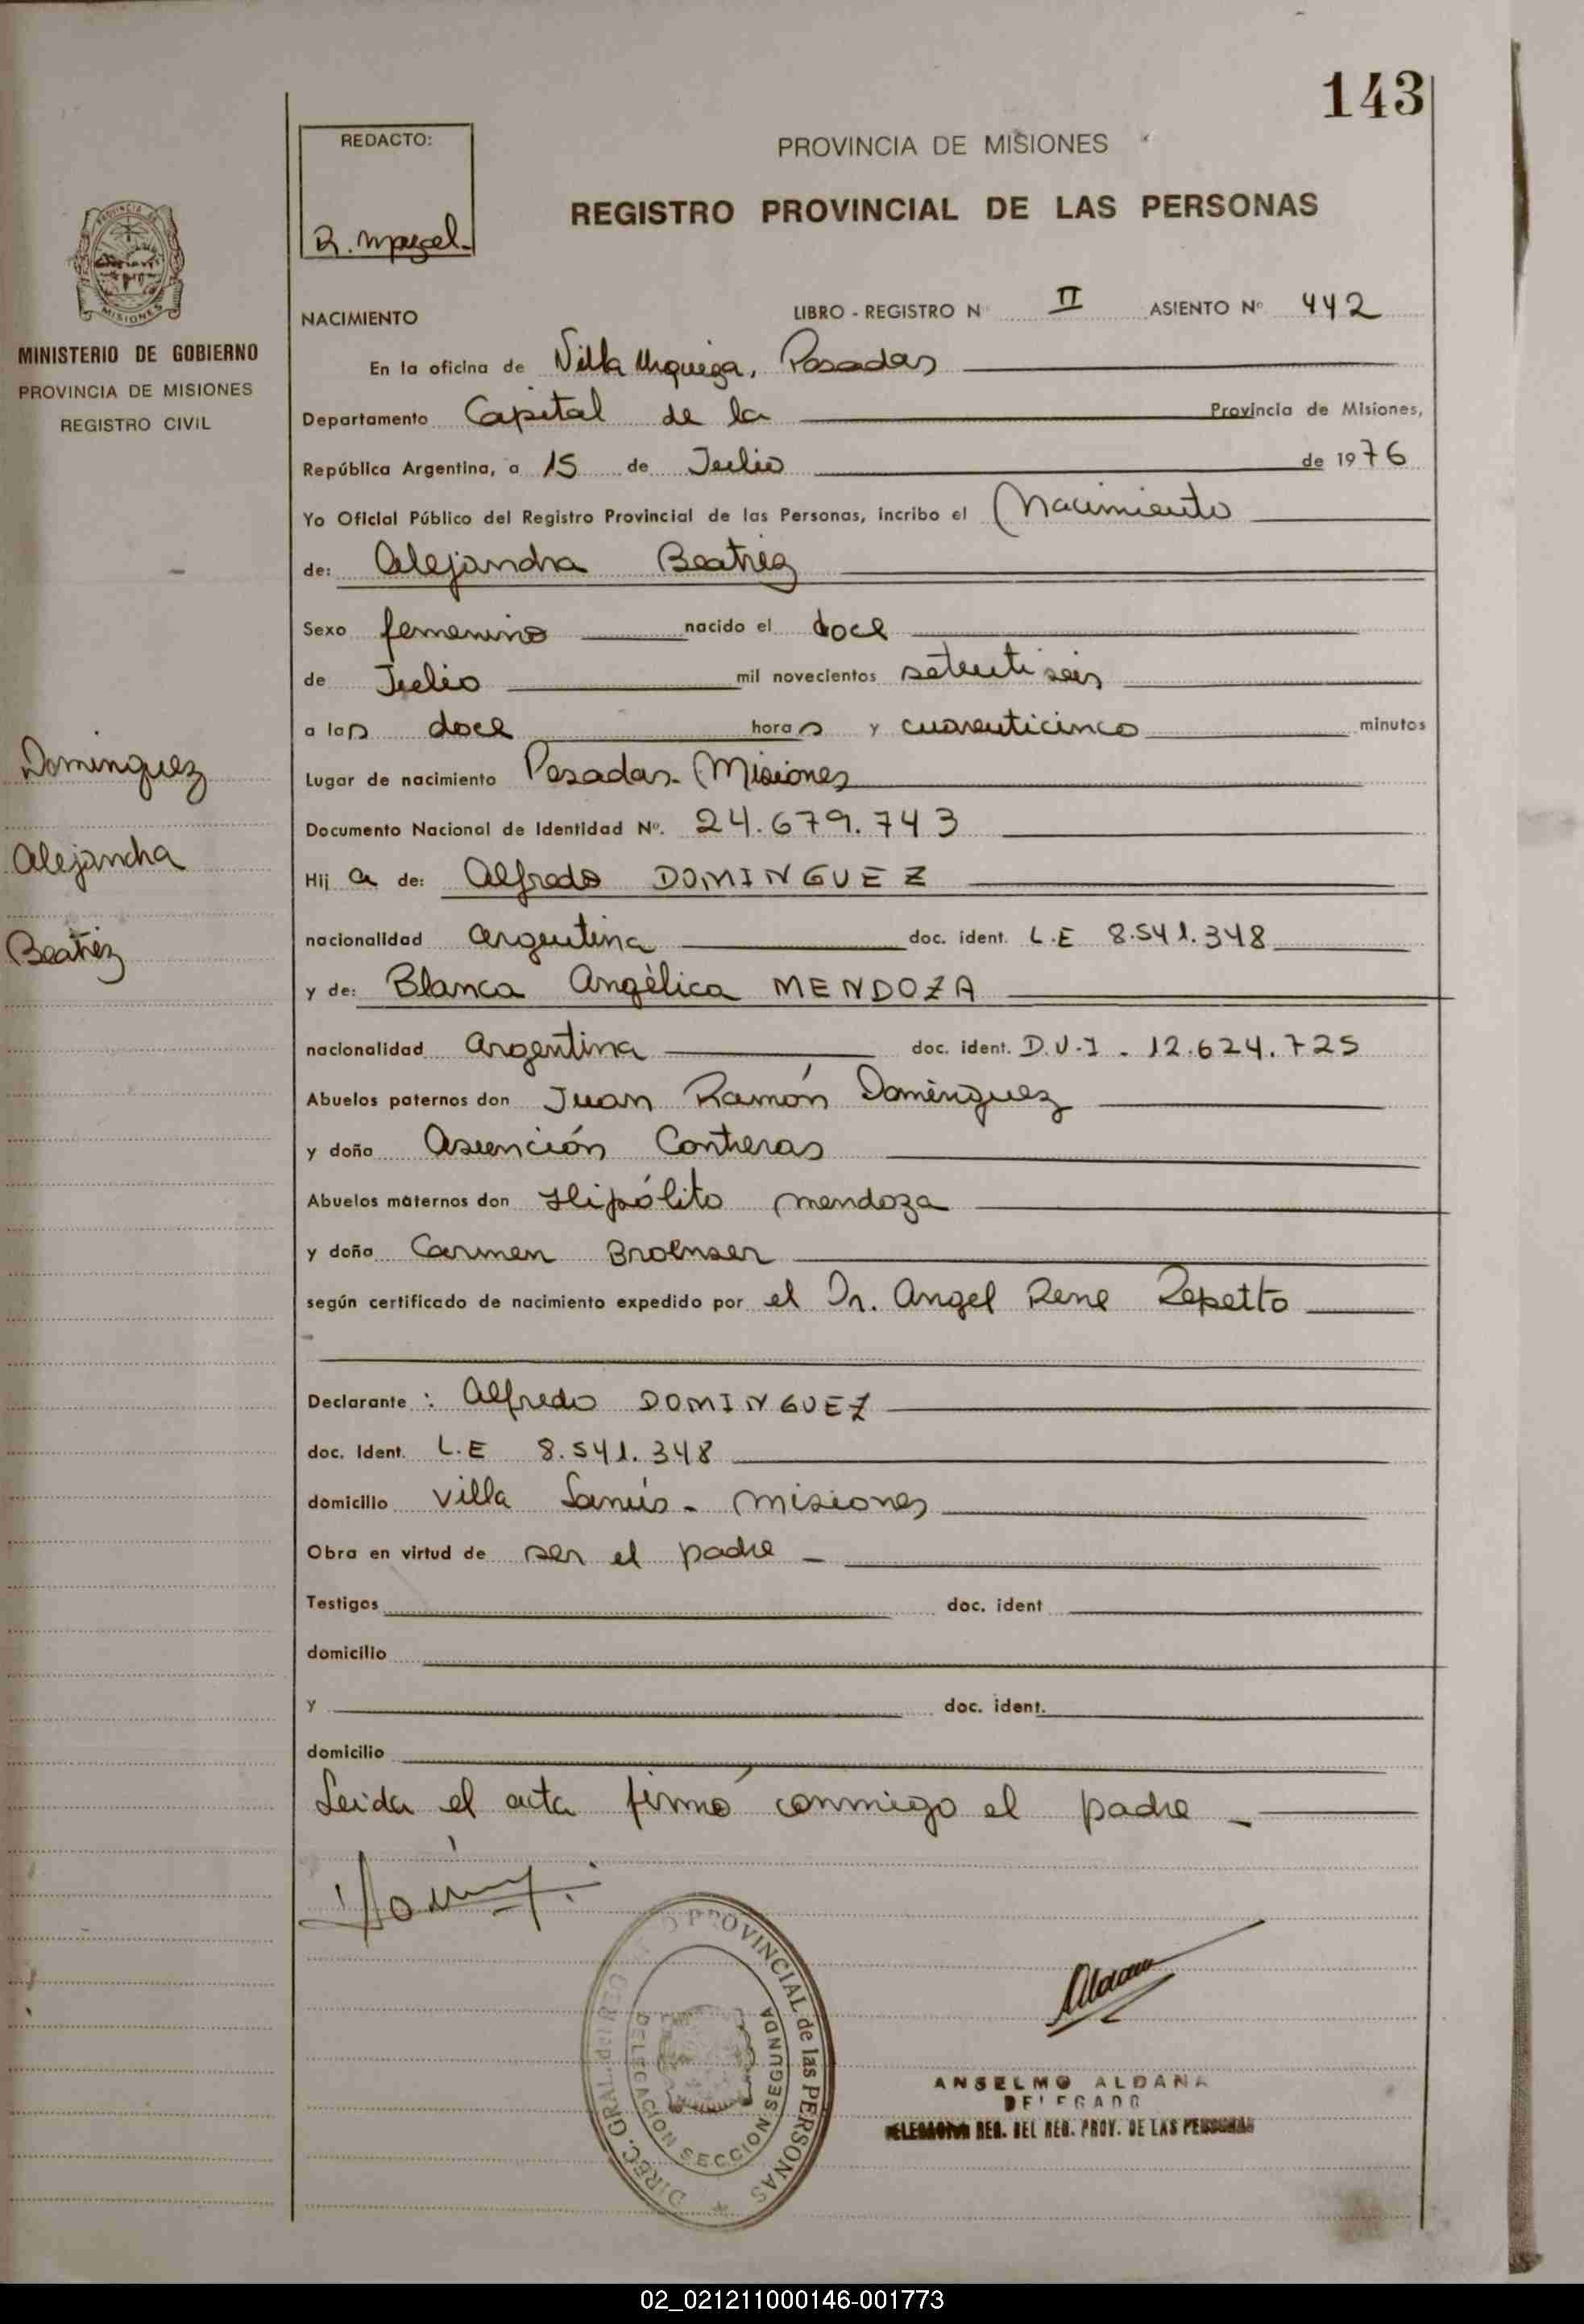 143
REDACTO:
PROVINCIA DE MISIONES
REGISTRO PROVINCIAL DE LAS PERSONAS
R.
PROVINCIA DE
MISIONES
MINISTERIO DE GOBIERNO
PROVINCIA DE MISIONES
REGISTRO CIVIL
NACIMIENTO LIBRO - REGISTRO Nº II ASIENTO Nº 442
En la oficina de Villa Urquiza, Posadas
Departamento Capital de la Provincia de Misiones,
República Argentina, a 15 de Julio de 1976
Yo Oficial Público del Registro Provincial de las Personas, incribo el Nacimiento
de: Alejandra Beatriz
Sexo femenino nacido el doce
de Julio mil novecientos setentiseis
a las doce horas y cuarenticinco minutos
Dominguez
Alejandra
Beatriz
Lugar de nacimiento Posadas - Misiones
Documento Nacional de Identidad Nº. 24.679.743
Hij a de: Alfredo DOMINGUEZ
nacionalidad argentina doc. ident. L.E 8.541.348
y de: Blanca Angélica MENDOZA
nacionalidad argentina doc. ident. D.U.I - 12.624.725
Abuelos paternos don Juan Ramón Domínguez
y doña Asunción Contreras
Abuelos maternos don Hipólito Mendoza
y doña Carmen
según certificado de nacimiento expedido por el Dr. Angel Rene Repetto
Declarante : Alfredo DOMINGUEZ
doc. Ident. L.E 8.541.348
domicilio Villa Lanús - Misiones
Obra en virtud de ser el padre -
Testigos doc. ident
domicilio
y doc. ident.
domicilio
Leida el acta firmó conmigo el padre -
DIREC. GRAL. del REGISTRO PROVINCIAL de las PERSONAS
DELEGACION SECCION SEGUNDA
Aldana
ANSELMO ALDANA
DELEGADO
REG. DEL REG. PROV. DE LAS PERSONAS
02_021211000146-001773